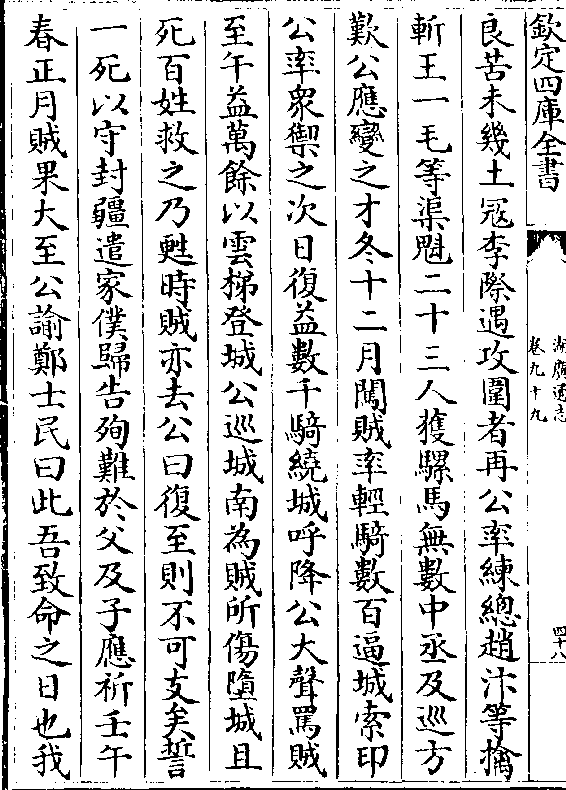 欽定四庫全書
湖廣通志
卷九十九
四十八
良苦未幾土冦李際遇攻圍者再公率練總趙汴等擒
斬王一毛等渠魁二十三人獲騾馬無數中丞及巡方
歎公應變之才冬十二月闖賊率輕騎數百逼城索印
公率衆禦之次日復益數千騎繞城呼降公大聲罵賊
至午益萬餘以雲梯登城公巡城南為賊所傷墮城且
死百姓救之乃甦時賊亦去公曰復至則不可支矣誓
一死以守封疆遣家僕歸告殉難於父及子應祈壬午
春正月賊果大至公諭鄭士民曰此吾致命之日也我